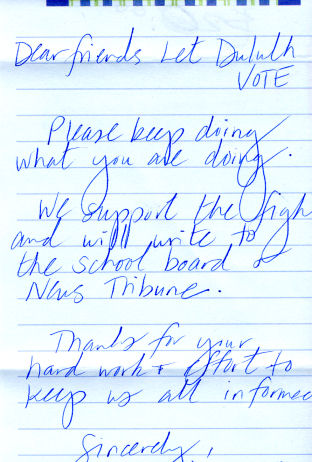 Dear friends Let Duluth
VOTE
Please keep doing
what you are doing.
We support the figh
and will write to
the school board &
News Tribune.
Thanks for your
hard work + effort to
keep us all informed
Sincerely,